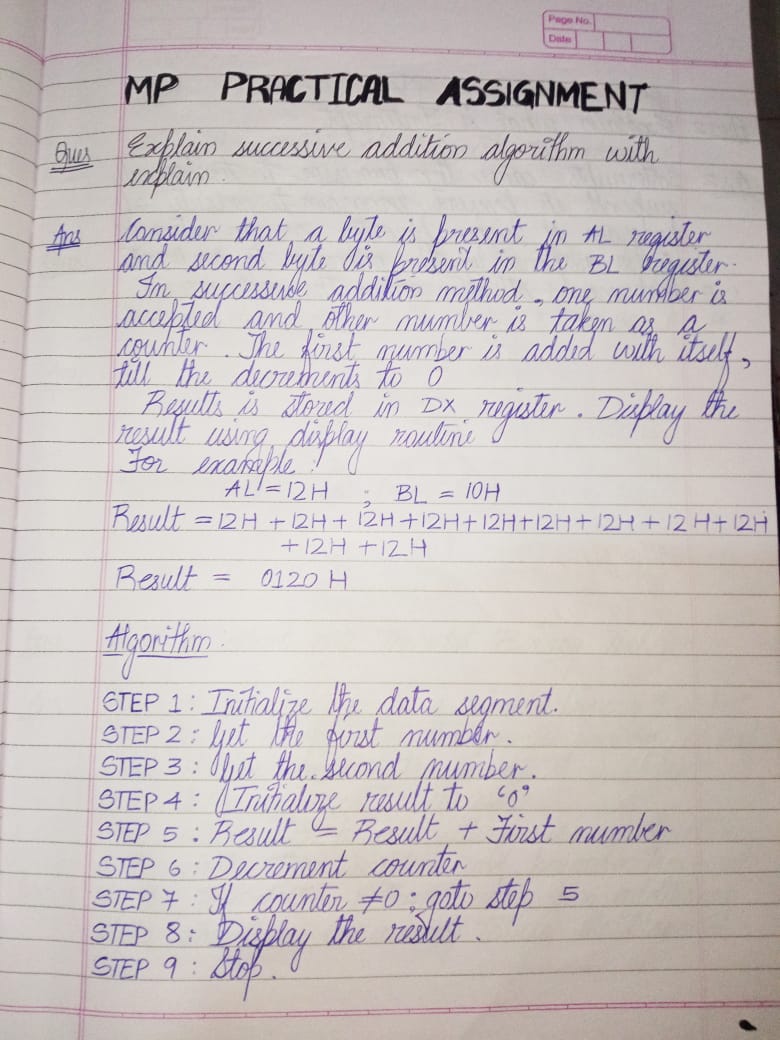 Page No.
Date
MP PRACTICAL ASSIGNMENT
Ques Explain successive addition algorithm with
explain.
Ans Consider that a byte is present in AL register
and second byte is present in the BL register.
In successive addition method, one number is
accepted and other number is taken as a
counter. The first number is added with itself,
till the decrements to 0
Results is stored in DX register. Display the
result using display routine
For example :
AL = 12H ; BL = 10H
Result = 12H + 12H + 12H + 12H + 12H + 12H + 12H + 12H + 12H
+ 12H + 12H
Result = 0120 H
Algorithm.
STEP 1 : Initialize the data segment.
STEP 2 : Get the first number.
STEP 3 : Get the second number.
STEP 4 : Initialize result to "0"
STEP 5 : Result = Result + First number
STEP 6 : Decrement counter
STEP 7 : If counter ≠ 0 ; goto step 5
STEP 8 : Display the result.
STEP 9 : Stop.